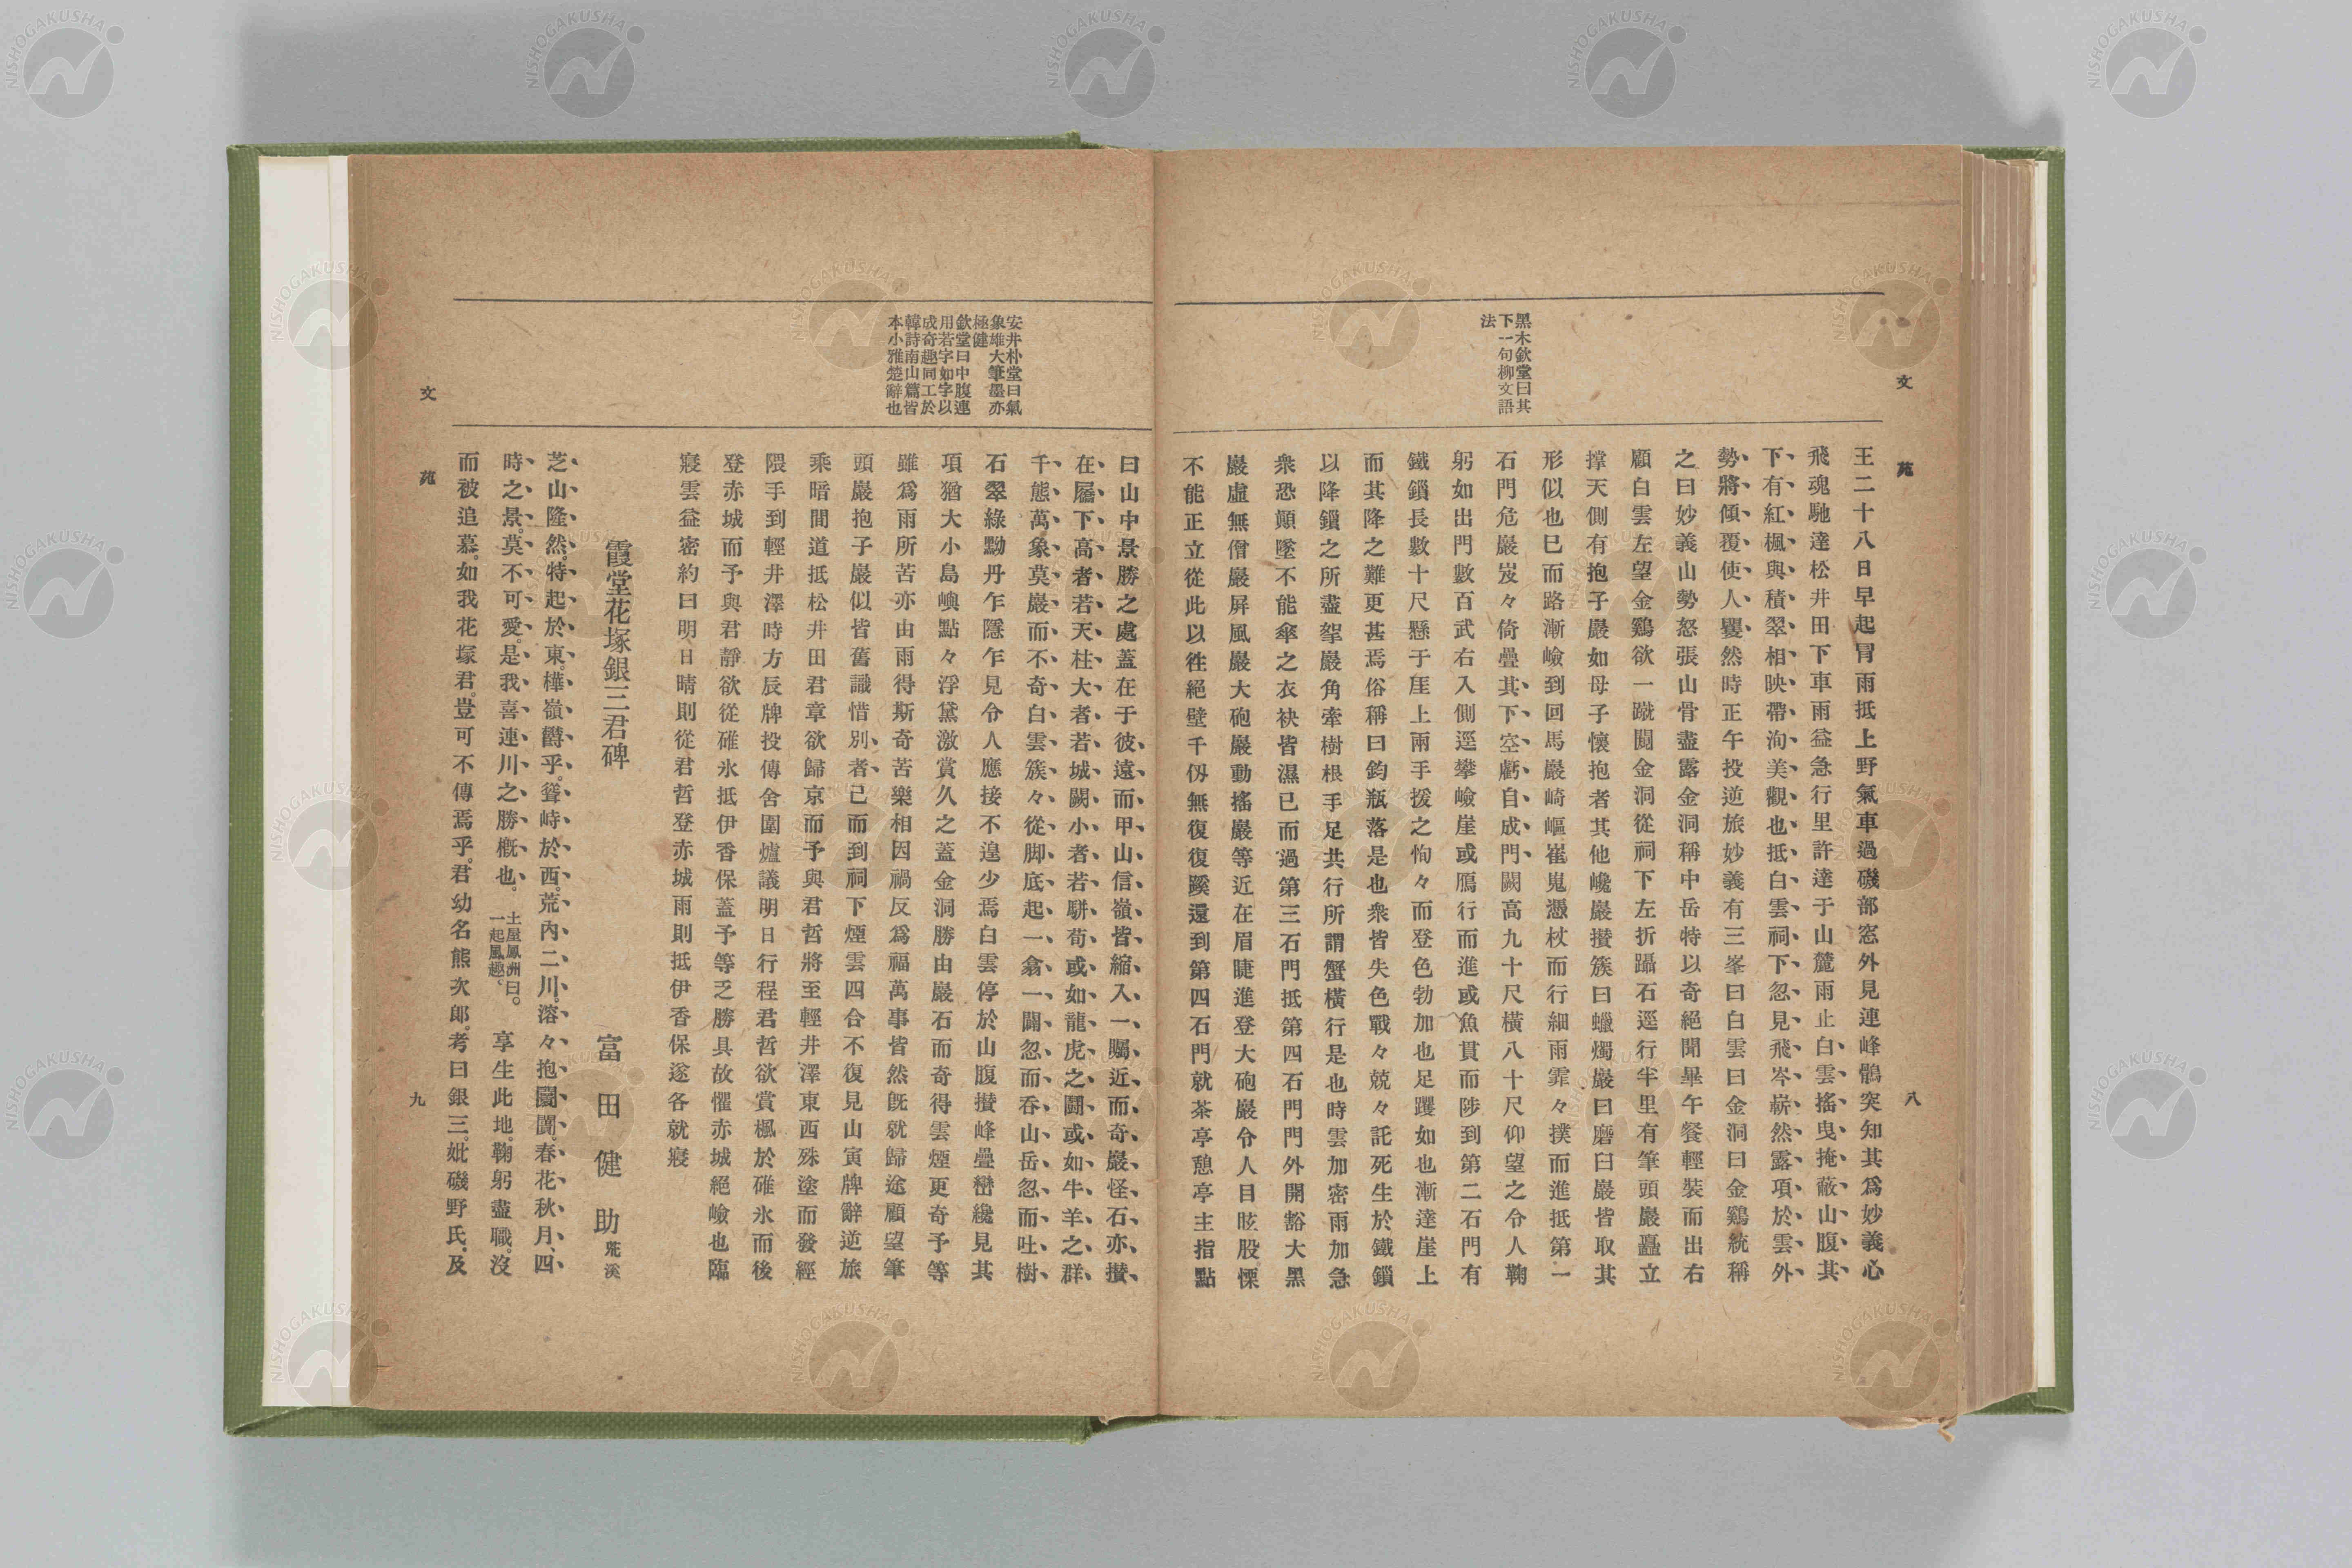 文苑
八
黑木欽堂曰其
下一句柳文語
法
王二十八日早起冒雨抵上野氣車過磯部窓外見連峰鶻突知其爲妙義心
飛魂馳達松井田下車雨益急行里許達于山麓雨止白雲搖曳掩蔽山腹其
下有紅楓與積翠相映帶洵美觀也抵白雲祠下忽見飛岑嶄然露項於雲外
勢將傾覆使人矍然時正午投逆旅妙義有三峯曰白雲曰金洞曰金鷄統稱
之曰妙義山勢怒張山骨盡露金洞稱中岳特以奇絕聞畢午餐輕裝而出右
顧白雲左望金鷄欲一蹴闘金洞從祠下左折躡石逕行半里有筆頭巖矗立
撑天側有抱子巖如母子懷抱者其他巉巖攅簇曰蠟燭巖曰磨臼巖皆取其
形似也已而路漸嶮到回馬巖崎嶇崔嵬憑杖而行細雨霏々撲而進抵第一
石門危巖岌々倚疊其下空虧自成門闕高九十尺橫八十尺仰望之令人鞠
躬如出門數百武右入側逕攀嶮崖或鴈行而進或魚貫而陟到第二石門有
鐵鎖長數十尺懸于厓上兩手援之恂々而登色勃加也足躩如也漸達崖上
而其降之難更甚焉俗稱曰釣瓶落是也衆皆失色戰々兢々託死生於鐵鎖
以降鎖之所盡挐巖角牽樹根手足共行所謂蟹橫行是也時雲加密雨加急
衆恐顚墜不能傘之衣袂皆濕已而過第三石門抵第四石門門外開豁大黑
巖虛無僧巖屏風巖大砲巖動搖巖等近在眉睫進登大砲巖令人目眩股慄
不能正立從此以徃絕壁千仭無復復蹊還到第四石門就茶亭憩亭主指點
安井朴堂曰氣
象雄大筆墨亦
極健
欽堂曰中腹連
用若字如字以
成奇趣同工於
韓詩南山篇皆
本小雅楚辭也
曰山中景勝之處蓋在于彼遠而甲山信嶺皆縮入一矚近而奇巖怪石亦攅
在屬下高者若天柱大者若城闕小者若騈荀或如龍虎之鬪或如牛羊之群
千態萬象莫巖而不奇白雲簇々從脚底起一翕一闢忽而吞山岳忽而吐樹
石翠綠黝丹乍隱乍見令人應接不遑少焉白雲停於山腹攅峰疊巒纔見其
項猶大小島嶼點々浮黛激賞久之蓋金洞勝由巖石而奇得雲煙更奇予等
雖爲雨所苦亦由雨得斯奇苦樂相因禍反爲福萬事皆然旣就歸途顧望筆
頭巖抱子巖似皆舊識惜別者已而到祠下煙雲四合不復見山寅牌辭逆旅
乘暗間道抵松井田君章欲歸京而予與君哲將至輕井澤東西殊塗而發經
隈手到輕井澤時方辰牌投傳舍圍爐議明日行程君哲欲賞楓於碓氷而後
登赤城而予與君靜欲從碓氷抵伊香保蓋予等乏勝具故懼赤城絕嶮也臨
寢雲益密約曰明日晴則從君哲登赤城雨則抵伊香保遂各就寢
霞堂花塚銀三君碑
富田健助 荒溪
芝山隆然。特起於東。樺嶺欝乎。聳峙於西。荒內二川。溶々抱園闢。春花秋月、四
時之景。莫不可愛。是我喜連川之勝槪也。土屋鳳洲曰。一起風趣。享生此地。鞠躬盡職。沒
而被追慕。如我花塚君。豈可不傳焉乎。君幼名熊次郎。考曰銀三。妣磯野氏。及
文苑
九